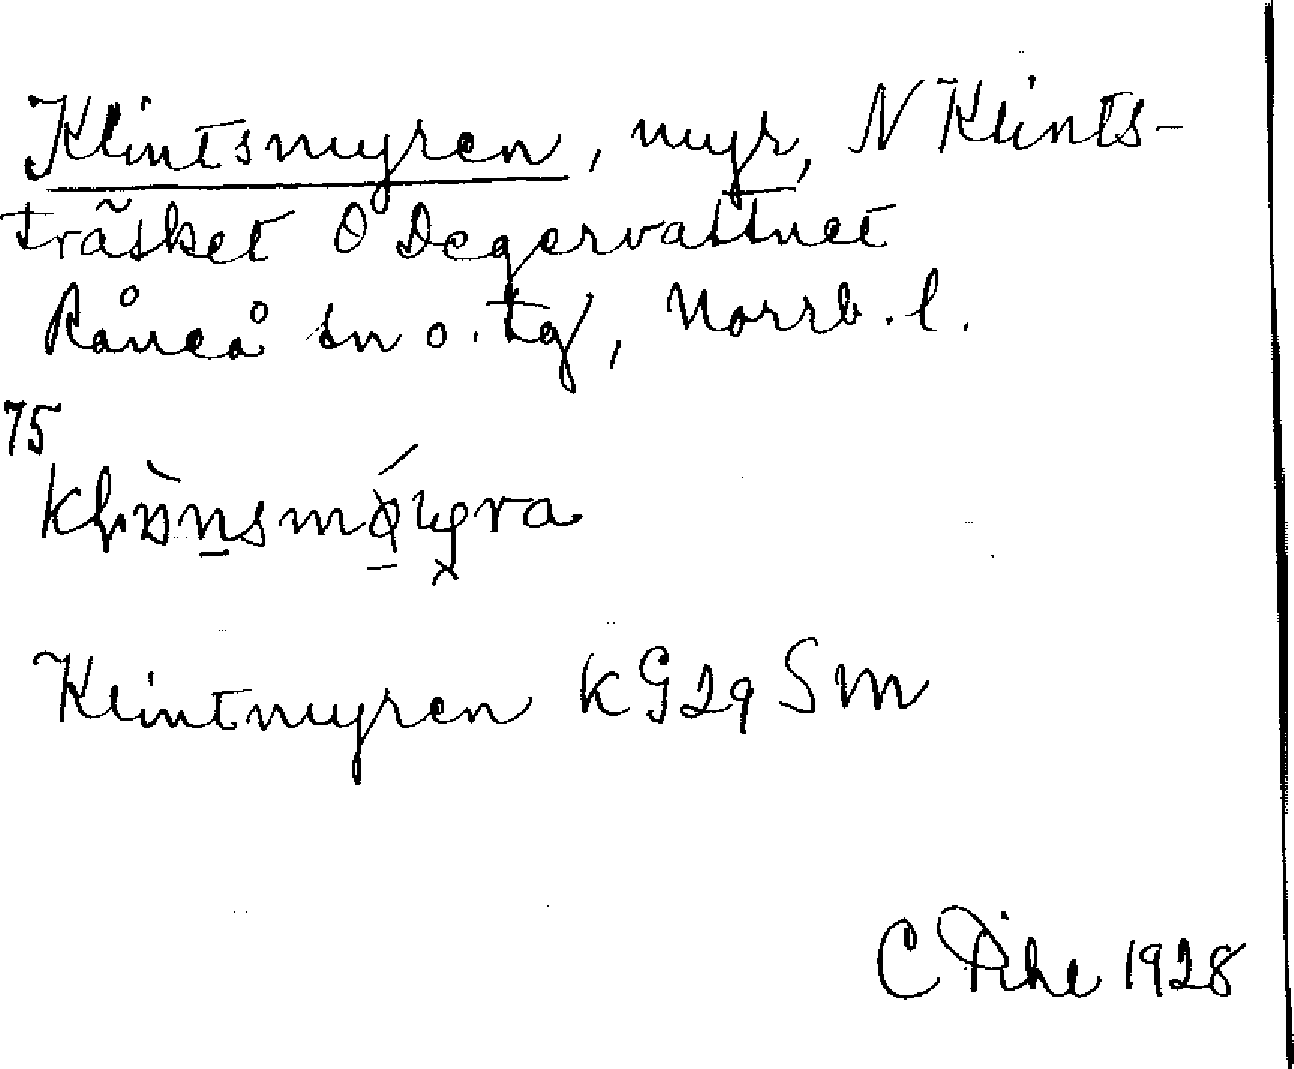 Klintsmyren, myr, N Klints-
träsket O Degervattnet
Råneå sn o. tg, Norrb. l.
75
Klintmyren KG29 Sm
C Pihl 1928